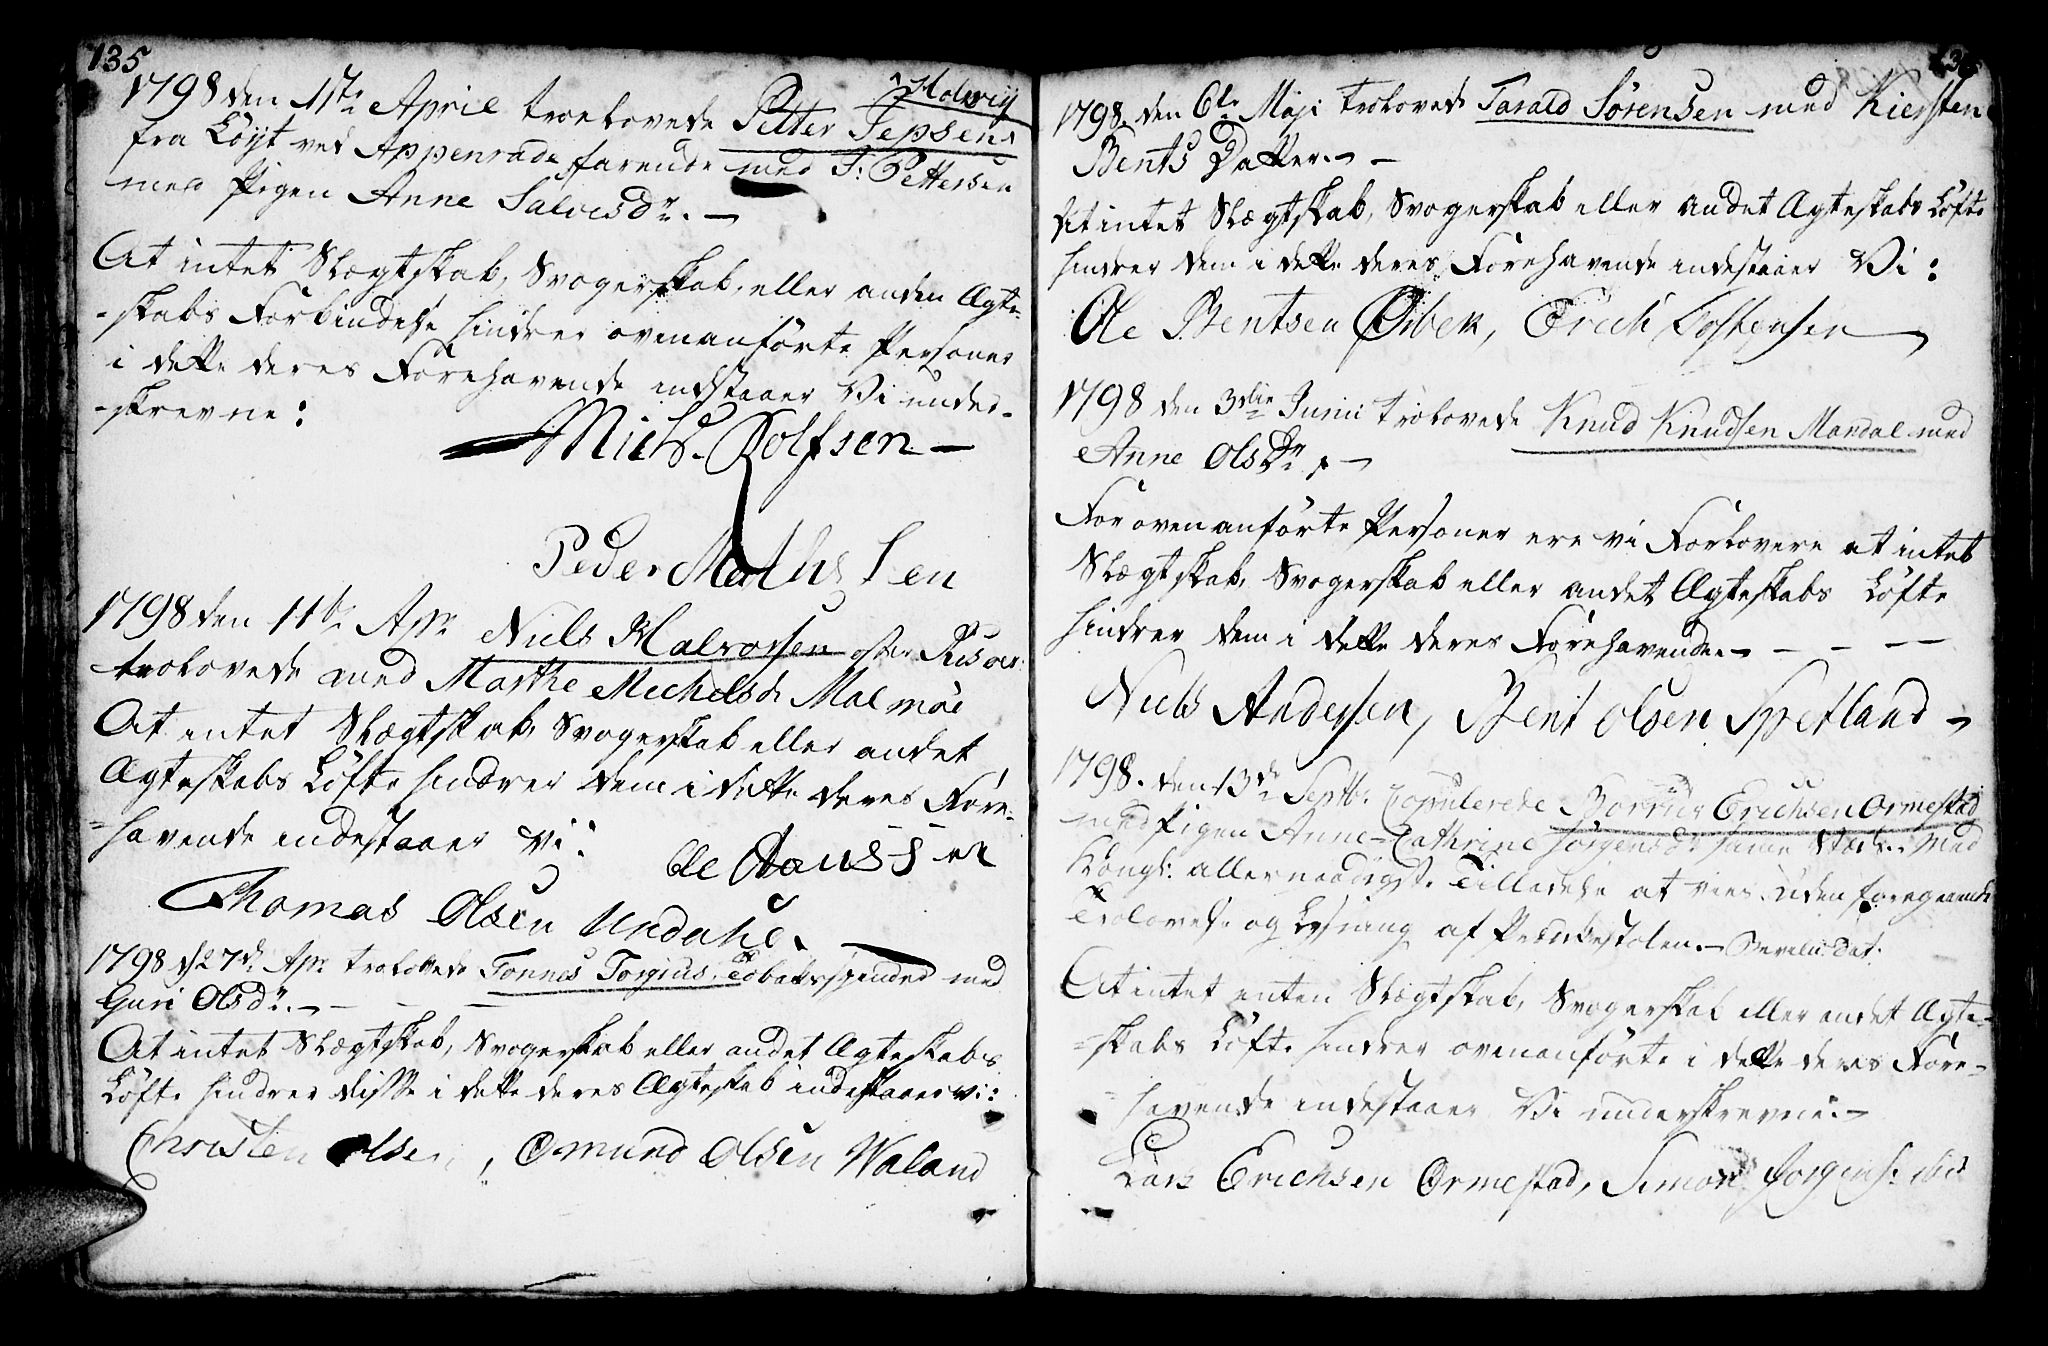 135
1798 den 1ste April troelovede Petter Jepsen Holvig
fra Löyt ved Appenrade farende med J: Pettersen
med Pigen Anne Salvesdr. –
At intet Slægtskab, Svogerskab, eller anden Ægte-
-skabs Forbindelse hindrer ovenanförte Personer
i dette deres Forehavende indstaaer Vi under-
-skrevne:
Niels Rolfsen –
Peder Mathissen
1798 den 11te Apr. Niels Halvorsen öster Riisöer
trolovede med Marthe Michelsdr Malmöe
At intet Slægtskab, Svogerskab eller andet
Ægteskabs Löfte hindrer dem i dette deres Fore-
=havende indestaaer Vi:
Ole Hanssen
Thomas Olsen Undahl. –
1798 d 27de Apr. trolovede Tönnes Torgius. med
Guri Olsdr. – – –
At intet Slægtskab, Svogerskab eller andet Ægteskabs
Löfte hindrer disse i dette deres Ægteskab indestaaer vi:
Christen Olsen, Omund Olsen Waland
136
1798. den 6te Maji trolovede Tarald Sörensen med Kiersten
Bents Datter. – –
At intet Slægtskab, Svogerskab eller andet Ægteskabs Löfte
hindrer dem i dette deres Forehavende indestaaer Vi:
Ole Bentsen Öibek, Erich Tostensen
1798 den 3die Junii trolovede Knud Knudsen Mandal med
Anne Olsdr. –
For ovenanförte Personer ere vi Forlovere at intet
Slægtskab, Svogerskab eller andet Ægteskabs Löfte
hindrer dem i dette deres Forehavende. – – – –
Niels Andersen, Bent Olsen Spetland –
1798. den 13de Septbr. Copulerede Borrius Erichsen Ormestad
med Pigen Anne-Cathrine Jörgensdr samme Stæd. Med
Kongl: allernaadigst. Tilladelse at vies uden foregaaende
Trolovelse og Lysning af Prædikestolen. –
At intet enten Slægtskab, Svogerskab eller andet Ægte-
=skabs Löfte hindrer ovenanförte i dette deres Fore-
=havende indestaaer Vi underskrevne. –
Lars Erichsen Ormestad, Simon Jörgens: ibid